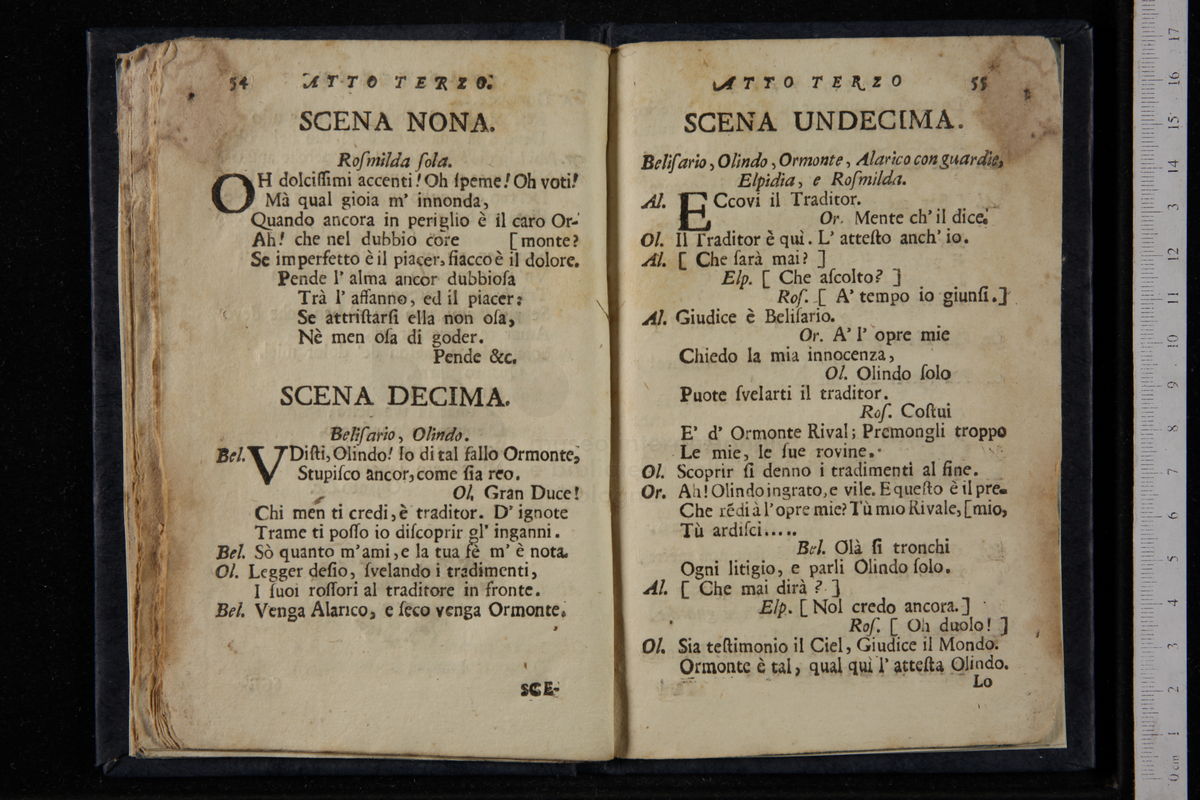 54 ATTO TERZO.
SCENA NONA.
Roſmilda ſola.
OH dolciſſimi accenti! Oh ſpeme! Oh voti!
Mà qual gioia m' innonda,
Quando ancora in periglio è il caro Or-
Ah! che nel dubbio core [monte?
Se imperfetto è il piacer, fiacco è il dolore.
Pende l' alma ancor dubbioſa
Trà l' affanno, ed il piacer:
Se attriſtarſi ella non oſa,
Nè men oſa di goder.
Pende &c.
SCENA DECIMA.
Beliſario, Olindo.
Bel. VDiſti, Olindo! Io di tal fallo Ormonte,
Stupiſco ancor, come ſia reo.
Ol. Gran Duce!
Chi men ti credi, è traditor. D' ignote
Trame ti poſſo io diſcoprir gl' inganni.
Bel. Sò quanto m'ami, e la tua fè m' è nota.
Ol. Legger deſio, ſvelando i tradimenti,
I ſuoi roſſori al traditore in fronte.
Bel. Venga Alarico, e ſeco venga Ormonte.
SCE-
ATTO TERZO 55
SCENA UNDECIMA.
Beliſario, Olindo, Ormonte, Alarico con guardie,
Elpidia, e Roſmilda.
Al. ECcovi il Traditor.
Or. Mente ch' il dice.
Ol. Il Traditor è quì. L' atteſto anch' io.
Al. [ Che ſarà mai? ]
Elp. [ Che aſcolto? ]
Roſ. [ A' tempo io giunſi.]
Al. Giudice è Beliſario.
Or. A' l' opre mie
Chiedo la mia innocenza,
Ol. Olindo ſolo
Puote ſvelarti il traditor.
Roſ. Coſtui
E' d' Ormonte Rival; Premongli troppo
Le mie, le ſue rovine.
Ol. Scoprir ſi denno i tradimenti al fine.
Or. Ah! Olindo ingrato, e vile. E queſto è il pre-
Che rēdi à l'opre mie? Tù mio Rivale, [mio,
Tù ardiſci.....
Bel. Olà ſi tronchi
Ogni litigio, e parli Olindo ſolo.
Al. [ Che mai dirà ? ]
Elp. [ Nol credo ancora.]
Roſ. [ Oh duolo! ]
Ol. Sia teſtimonio il Ciel, Giudice il Mondo.
Ormonte è tal, qual quì l' atteſta Olindo.
Lo
0 cm 1 2 3 4 5 6 7 8 9 10 11 12 13 14 15 16 17